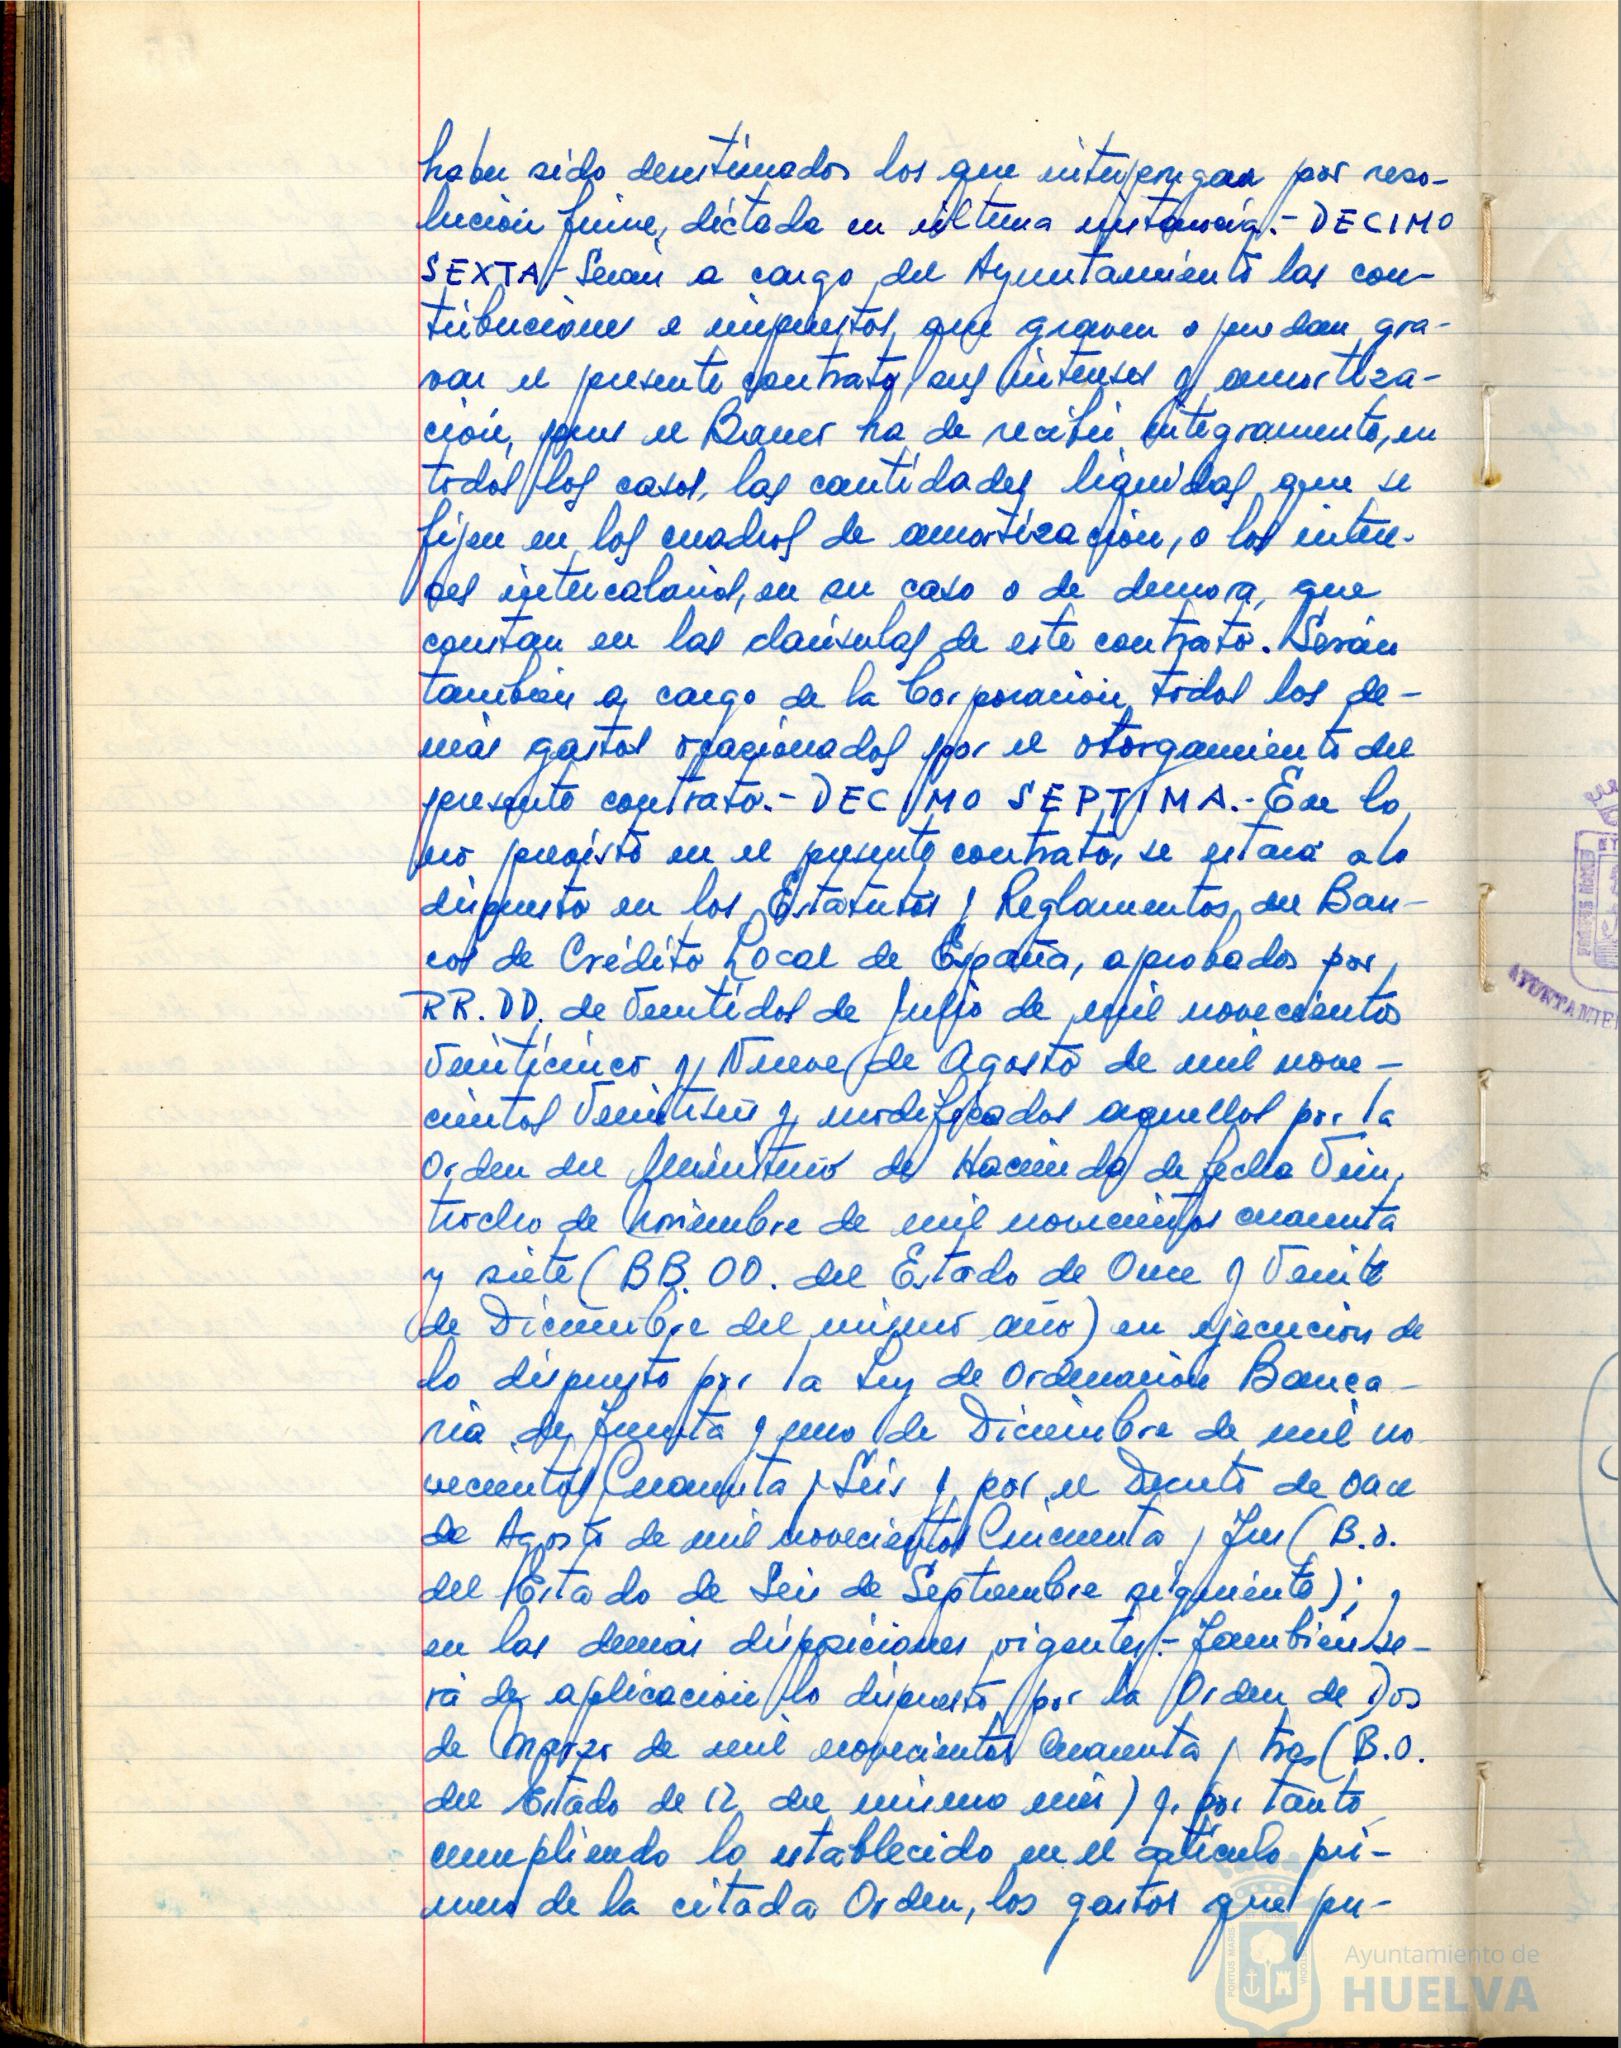 haber sido desestimados los que interpongan por reso-
lución firme, dictada en última instancia.- DECIMO
SEXTA- Serán a cargo del Ayuntamiento las con-
tribuciones e impuestos, que graven o puedan gra-
var el presente contrato, sus intereses y amortiza-
ción, pues el Banco ha de recibir integramente, en
todos los casos, las cantidades liquidas que se
fijen en los cuadros de amortización, o los intere-
ses intercalarios, en su caso o de demora, que
constan en las clausulas de este contrato. Serán
tambien a cargo de la Corporación todos los de-
más gastos ocasionados por el otorgamiento del
presente contrato.- DECIMO SEPTIMA.- En lo
no previsto en el presente contrato, se estará a lo
dispuesto en los Estatutos y Reglamentos del Ban-
cos de Crédito Local de España, aprobados por
RR. DD. de Veintidos de Julio de mil novecientos
Veinticinco y Nueve de Agosto de mil nove-
cientos Veintiseis y modificados aquellos por la
Orden del Ministerio de Hacienda de fecha Vein-
tiocho de Noviembre de mil novecientos cuarenta
y siete (BB. OO. del Estado de Once y Veinte
de Diciembre del mismo año) en ejecución de
lo dispuesto por la Ley de Ordenación Banca-
ria de Treinta y uno de Diciembre de mil no
vecientos Cuarenta y Seis y por el Decreto de Once
de Agosto de mil novecientos Cincuenta y Tres (B.O.
del Estado de Seis de Septiembre siguiente); y
en las demás disposiciones vigentes.- Tambien se-
rá de aplicación lo dispuesto por la Orden de Dos
de Marzo de mil novecientos Cuarenta y tres (B.O.
del Estado de 12 del mismo mes) y, por tanto
cumpliendo lo establecido en el artículo pri-
mero de la citada Orden, los gastos que pu-
AYUNTAMIE
PORTUS MARIS
CUSTODIA
Ayuntamiento de
HUELVA